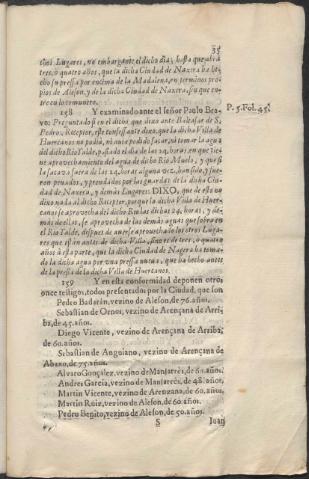 35
dichos Lugares, no embargante el dicho dia; hasta que abrá
tres, ò quatro años, que la dicha Ciudad de Naxera ha he-
cho su pressa por encima de la Madalena, en terminos pro-
pios de Aleson, y de la dicha Ciudad de Naxera, sea que es-
otro co inconveniente.
158 Y examinado ante el señor Paulo Bra-
vo: Preguntado si en el dicho que dixo ante Baltasar de S.
Pedro, Receptor, este confessante dixo, que la dicha Villa de
Huercanos no podia, ni ante podido sacar, ni tomar la agua
del dicho Rio Yalde, passado el dia de las 24. horas, en que tie-
ne aprovechamiento del agua de dicho Rio Muelo, y que si
la sacava fuera de las 24. horas alguna vez, han sido, y fue-
ron penados, y prendados por las guardas de la dicha Ciu-
dad de Naxera, y demàs Lugares: DIXO, que de esto no
dixo nada al dicho Receptor, porque la dicha Villa de Huer-
canos se aprovecha del dicho Rio las dichas 24. horas, y de-
màs de ellas, se aprovecha de las demàs aguas que sobran en
el Rio Yalde, despues de averse aprovechado los otros Luga-
res que estàn antes de dicha Villa, sino es de tres, ò quatro
años à esta parte, que la dicha Ciudad de Nagera ha tomado
de la dicha agua por una pressa nueva, que ha hecho antes
de la pressa de la dicha Villa de Huercanos.
P. 5. Fol. 45.
159 Y en esta conformidad deponen otros
onze testigos, todos presentados por la Ciudad, que son
Pedro Badaràn, vezino de Aleson, de 76. años.
Sebastian de Ornos, vezino de Arençana de Arri-
ba, de 45. años.
Diego Vicente, vezino de Arençana de Arriba,
de 60. años.
Sebastian de Anguiano, vezino de Arençana de
Abaxo, de 75. años.
Alvaro Gonçalez, vezino de Manjarrès, de 61. años.
Andres Garcia, vezino de Manjarrès, de 48. años.
Martin Vicente, vezino de Arenzana, de 60. años.
Martin Ruiz, vezino de Aleson, de 60. años.
Pedro Benito, vezino de Aleson, de 50. años.
S Juan